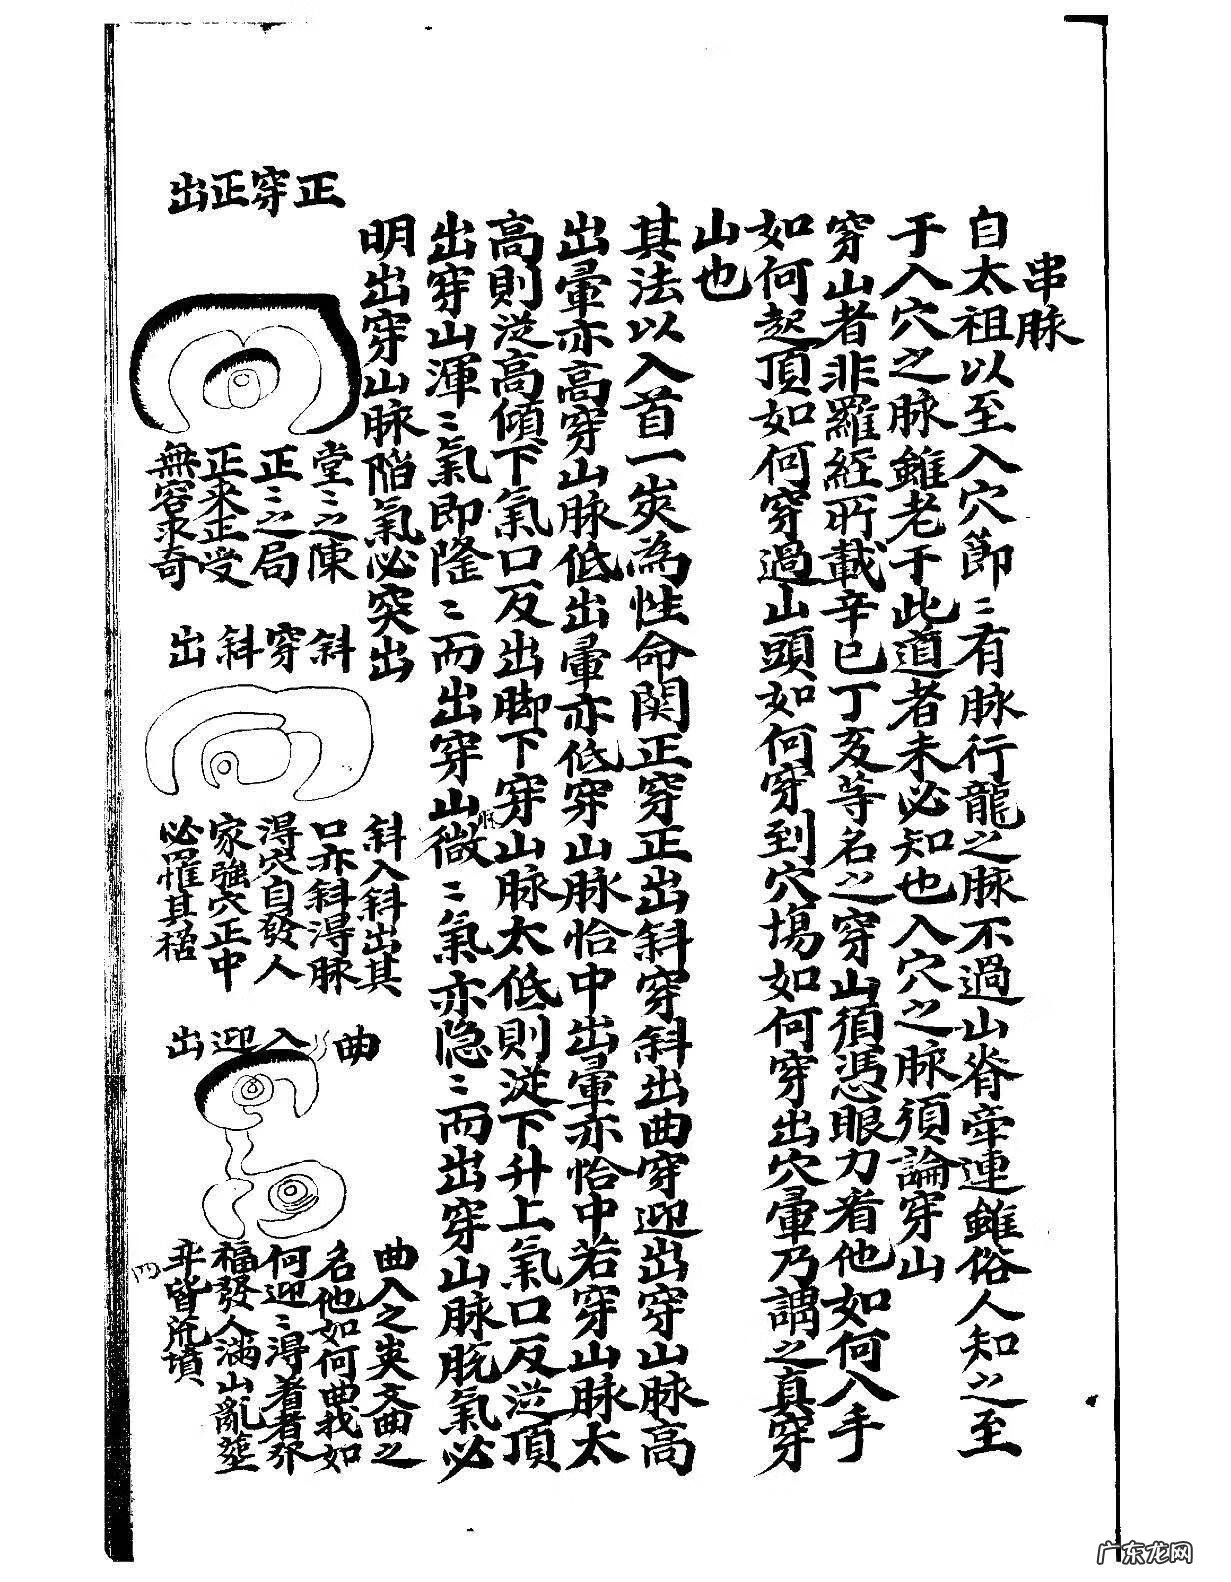 串脉
自太祖以至入穴節〻有脉行龍之脉不過山脊牵連雖俗人知之至
于入穴之脉雖老于此道者未必知也入穴之脉須論穿山
穿山者非羅經所載辛巳丁亥等名之穿山須憑眼力看他如何入手
如何起頂如何穿過山頭如何穿到穴塲如何穿出穴暈乃謂之真穿
山也
其法以入首一夾為性命関正穿正出斜穿斜出曲穿迎出穿山脉高
出暈亦高穿山脉低出暈亦低穿山脉恰中出暈亦恰中若穿山脉太
高則從高傾下氣口反出脚下穿山脉太低則從下升上氣口反從頂
出穿山渾〻氣即隆〻而出穿山微〻氣亦隐〻而出穿山脉脱氣必
脉
明出穿山脉陷氣必突出
正穿正出
堂〻之陳
正〻之局
正来正受
無容求奇
斜穿斜出
斜入斜出其
口亦斜淂脉
淂穴自發人
家強穴正中
必罹其
曲入迎出
曲入之夾文曲之
名他如何曲我如
何迎〻淂着者
福發人滿山亂塟
非皆荒墳
四
广东龙网